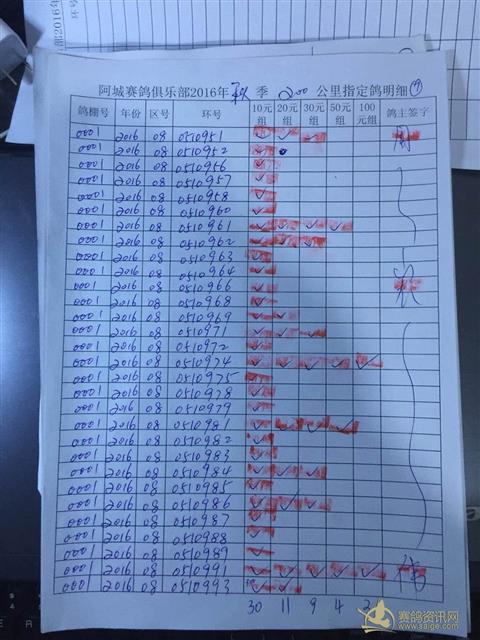 阿城赛鸽俱乐部2016年 秋 季 200 公里指定鸽明细
鸽棚号 年份 区号 环号 10元组 20元组 30元组 50元组 100元组 鸽主签字
0001 2016 08 0510951 ✓ ✓ ✓
0001 2016 08 0510952 ✓
0001 2016 08 0510956 ✓
0001 2016 08 0510957 ✓
0001 2016 08 0510958 ✓
0001 2016 08 0510960 ✓
0001 2016 08 0510961 ✓ ✓ ✓ ✓
0001 2016 08 0510962 ✓ ✓ ✓
0001 2016 08 0510963 ✓
0001 2016 08 0510964 ✓
0001 2016 08 0510966 ✓
0001 2016 08 0510968 ✓
0001 2016 08 0510969 ✓ ✓
0001 2016 08 0510971 ✓ ✓ ✓
0001 2016 08 0510972 ✓
0001 2016 08 0510974 ✓ ✓ ✓ ✓ ✓
0001 2016 08 0510975 ✓
0001 2016 08 0510978 ✓
0001 2016 08 0510979 ✓
0001 2016 08 0510981 ✓ ✓ ✓ ✓
0001 2016 08 0510982 ✓
0001 2016 08 0510983 ✓
0001 2016 08 0510984 ✓ ✓ ✓
0001 2016 08 0510985 ✓
0001 2016 08 0510986 ✓ ✓ ✓
0001 2016 08 0510987 ✓
0001 2016 08 0510988 ✓
0001 2016 08 0510989 ✓
0001 2016 08 0510991 ✓ ✓ ✓ ✓ ✓
0001 2016 08 0510993 ✓ ✓
30 11 9 4 2
赛鸽资讯网
www.saige.com